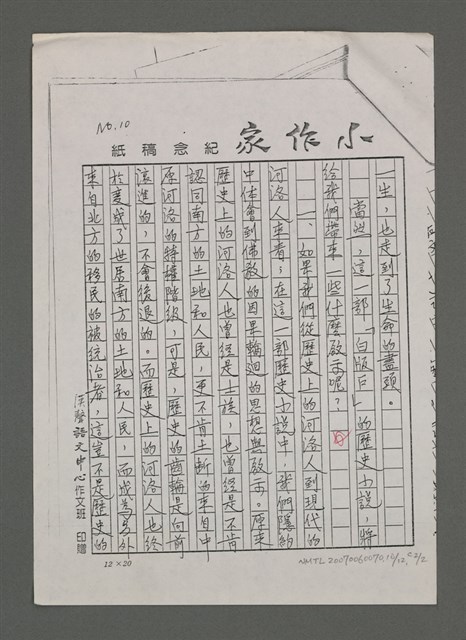 No.10
小作家 紀念稿紙
一生，也走到了生命的盡頭。
當然，這一部「白版戶」的歷史小說，將
給我們帶來一些什麼啟示呢？
一、如果我們從歷史上的河洛人到現代的
河洛人來看；在這一部歷史小說中，我們隱約
中体會到佛教的因果輪迴的思想與啟示。原來
歷史上的河洛人也曾經是士族，也曾經是不肯
認同南方的土地和人民，更不肯土斷的來自中
原河洛的特權階級，可是，歷史的齒輪是向前
滾進的，不會後退的。而歷史上的河洛人也終
於變成了世居南方的土地和人民，而成為另外
來自北方的移民的被統治者，這豈不是歷史的
漢聲語文中心作文班 印贈
12×20
NMTL20070060070,10/12, c2/2